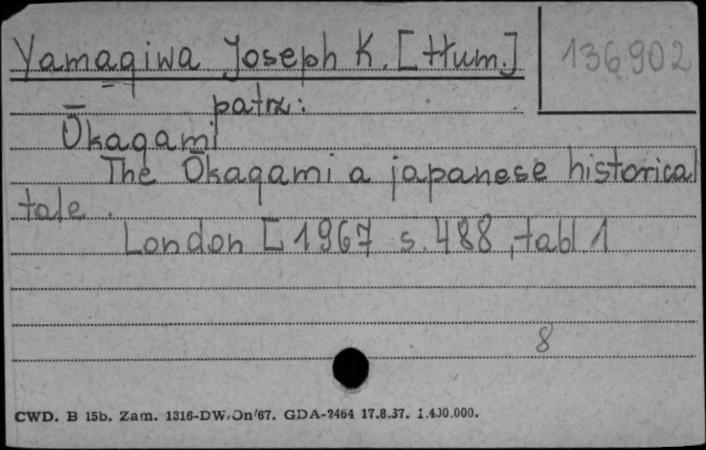 Yamagiwa Joseph K. [tłum.]
136902
patrz:
Ōkagami
The Ōkagami a japanese historical
tale.
London [1967 s. 488, tabl 1
8
CWD. B 15b. Zam. 1316-DW/Dn/67. GDA-2464 17.8.37. 1.400.000.